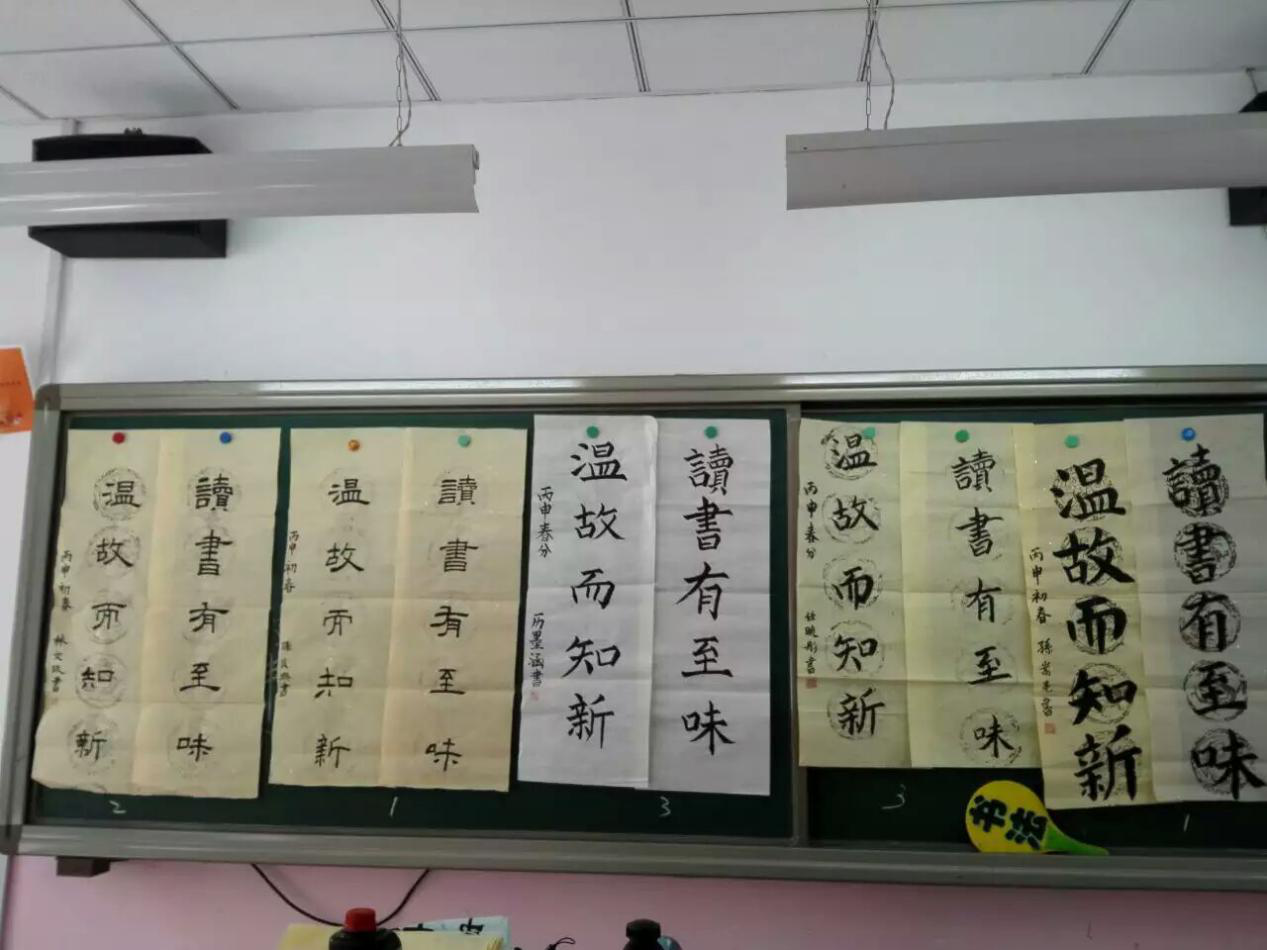 讀書有至味
温故而知新
丙申初春
讀書有至味
温故而知新
丙申初春
讀書有至味
温故而知新
丙申春分 历墨涵書
讀書有至味
温故而知新
丙申春分
讀書有至味
温故而知新
丙申初春
2
1
3
3
1
书法